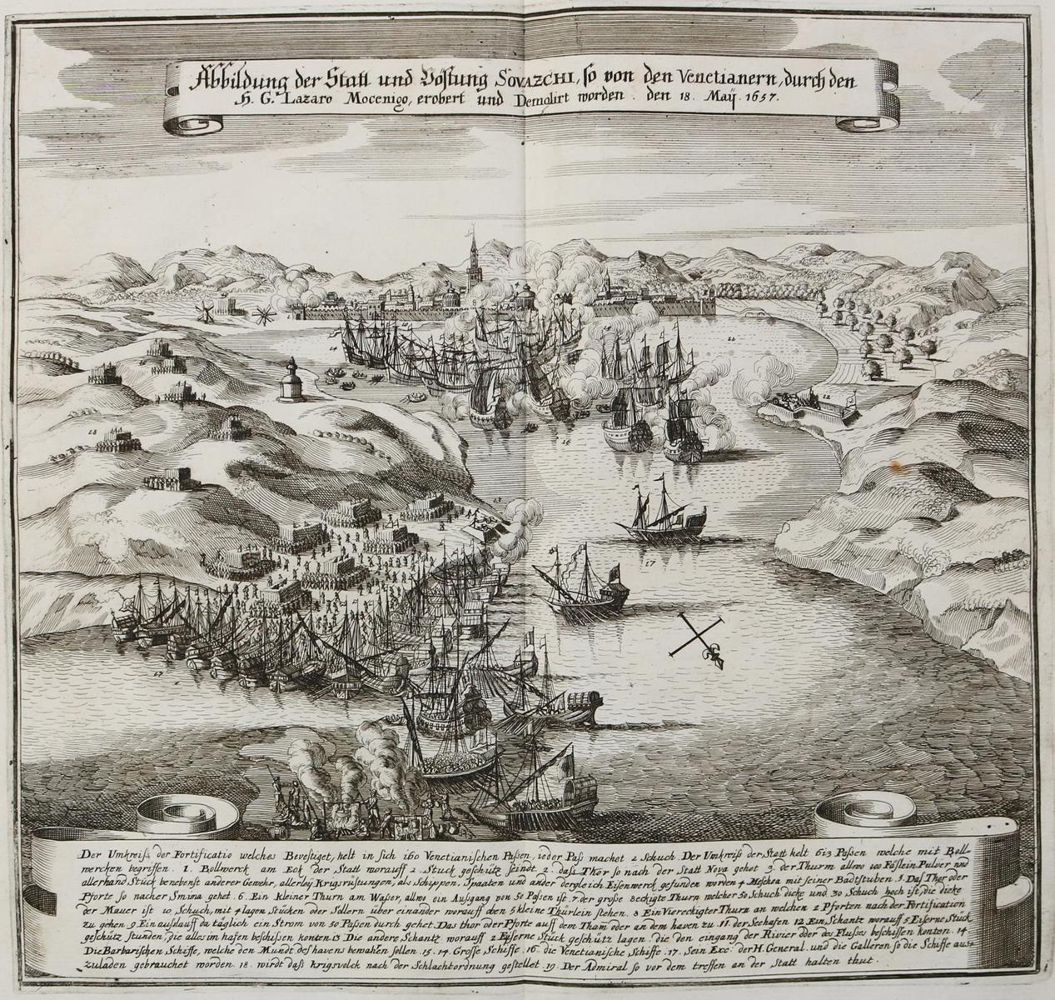 Abbildung der Statt und Vöstung SOVAZCHI, so von den Venetianern, durch den
H. G. Lazaro Mocenigo, erobert und Demolirt worden. den 18. Maÿ. 1657.
14
12
16
18
13
17
Der Umkreiß der Fortificatio welches Bevestiget, helt in sich 160 Venetianischen Paßen, ieder Paß machet 2 Schuch. Der Umkreiß der Statt helt 613 Paßen welche mit Boll-
wercken begriffen. 1. Bollwerck am Eck der Statt worauff 2 Stuck geschütz seindt. 2. das Thor so nach der Statt Nova gehet 3. der Thurm allwo 100 Fäßlein Pulver und
allerhand Stuck benebenst anderer Gewehr, allerley Krigsrüstungen, als Schippen, Spaaten und ander dergleich Eisenwerck gefunden worden 4 Meschea mit seiner Badtstuben 5. Das Thor oder
Pforte so nacher Smirna gehet. 6. Ein kleiner Thurn am Waßer, allwo ein Außgang von 50 Paßen ist 7 der große 8eckigte Thurn welcher 50 Schuch dicke und 30 Schuch hoch ist, die dicke
der Mauer ist 10 Schuch, mit 4 lagen Stücken oder Sollern über einander worauff oben 5 kleine Thürlein stehen. 8 Ein Viereckigter Thurn an welchen 2 Pforten nach der Fortification
zu gehen 9 Ein außlauff da täglich ein Strom von 50 Paßen durch gehet. Das thor oder Pforte auff dem Tham oder an dem haven zu 11. der Seehafen. 12. Ein Schantz worauff 5 Eiserne Stück
geschütz stunden, die alles im hafen beschißen konten 13 Die andere Schantz worauff 2 Eiserne Stück geschütz lagen, die den eingang der Rivier oder des Flußes beschißen konten. 14.
Die Barbarischen Schiffe, welche den Mundt des havens bewahren sollen. 15. 14 Große Schiffe 16 die Venetianische Schiffe. 17. Sein Exc. der H. General. und die Galleren so die Schiffe auß
zuladen gebrauchet worden 18. wirdt daß krigsvolck nach der Schlachtordnung gestellet 19. Der Admiral so vor dem treffen an der Statt halten thut.